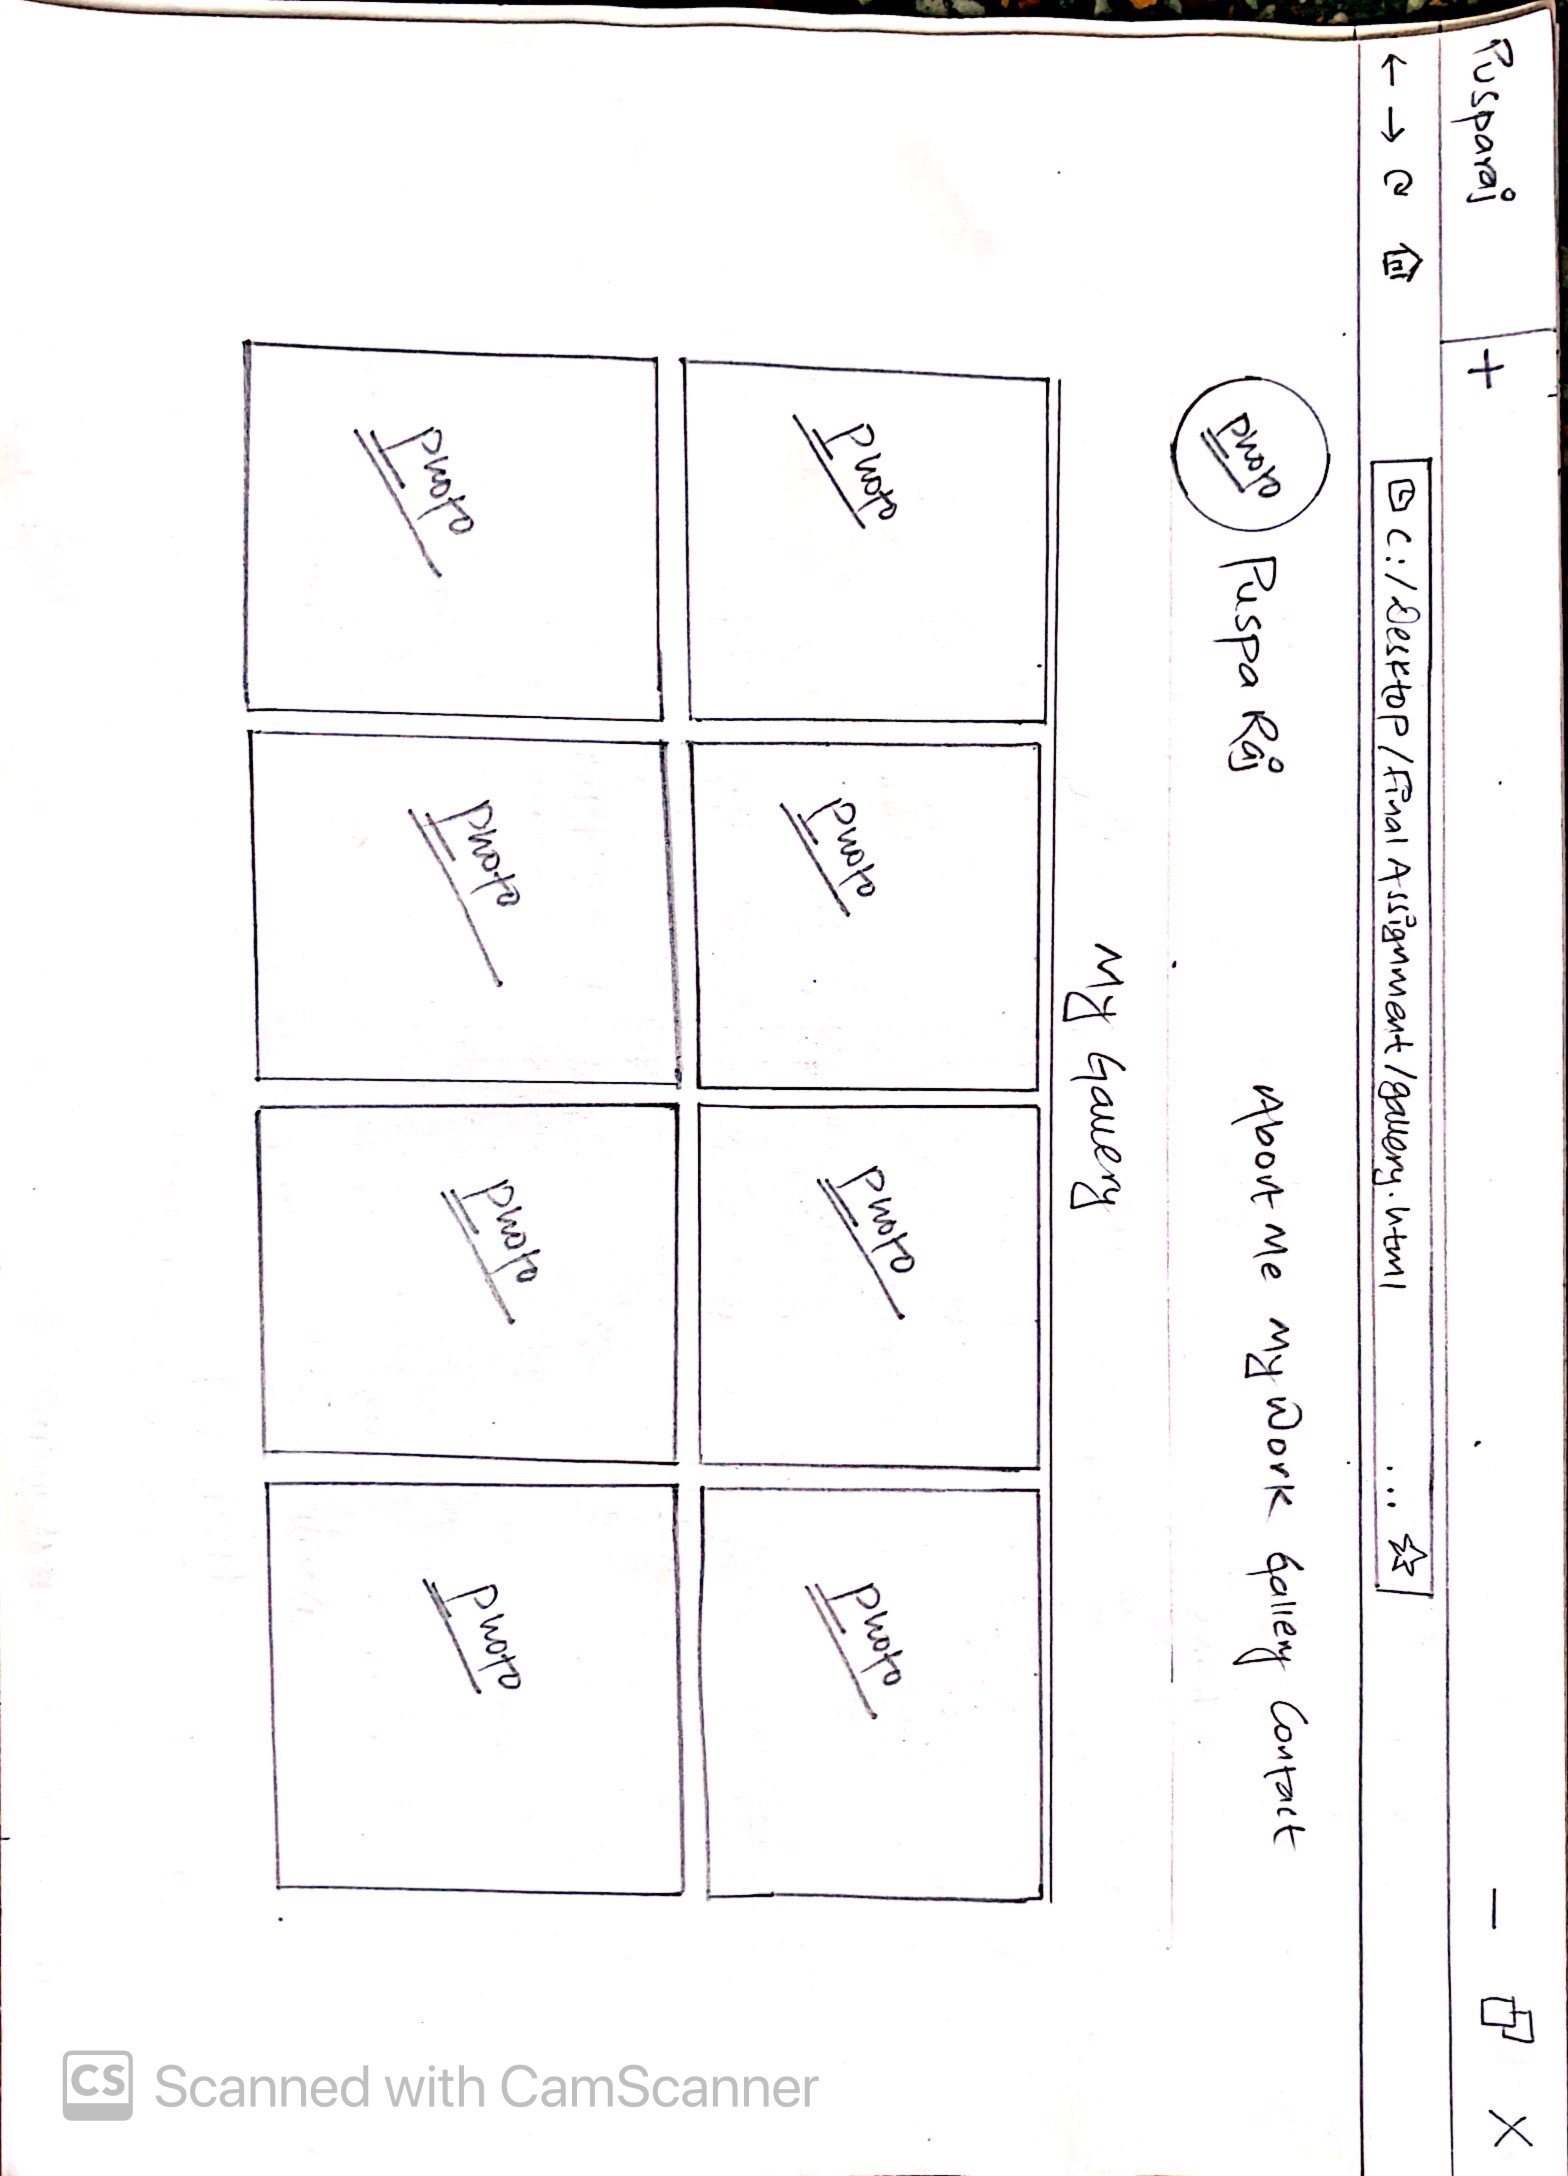 Pusparaj +
C:/Desktop/Final Assignment/gallery.html ...
Photo Puspa Raj About Me My Work Gallery Contact
My Gallery
Photo Photo Photo Photo
Photo Photo Photo Photo
CS Scanned with CamScanner